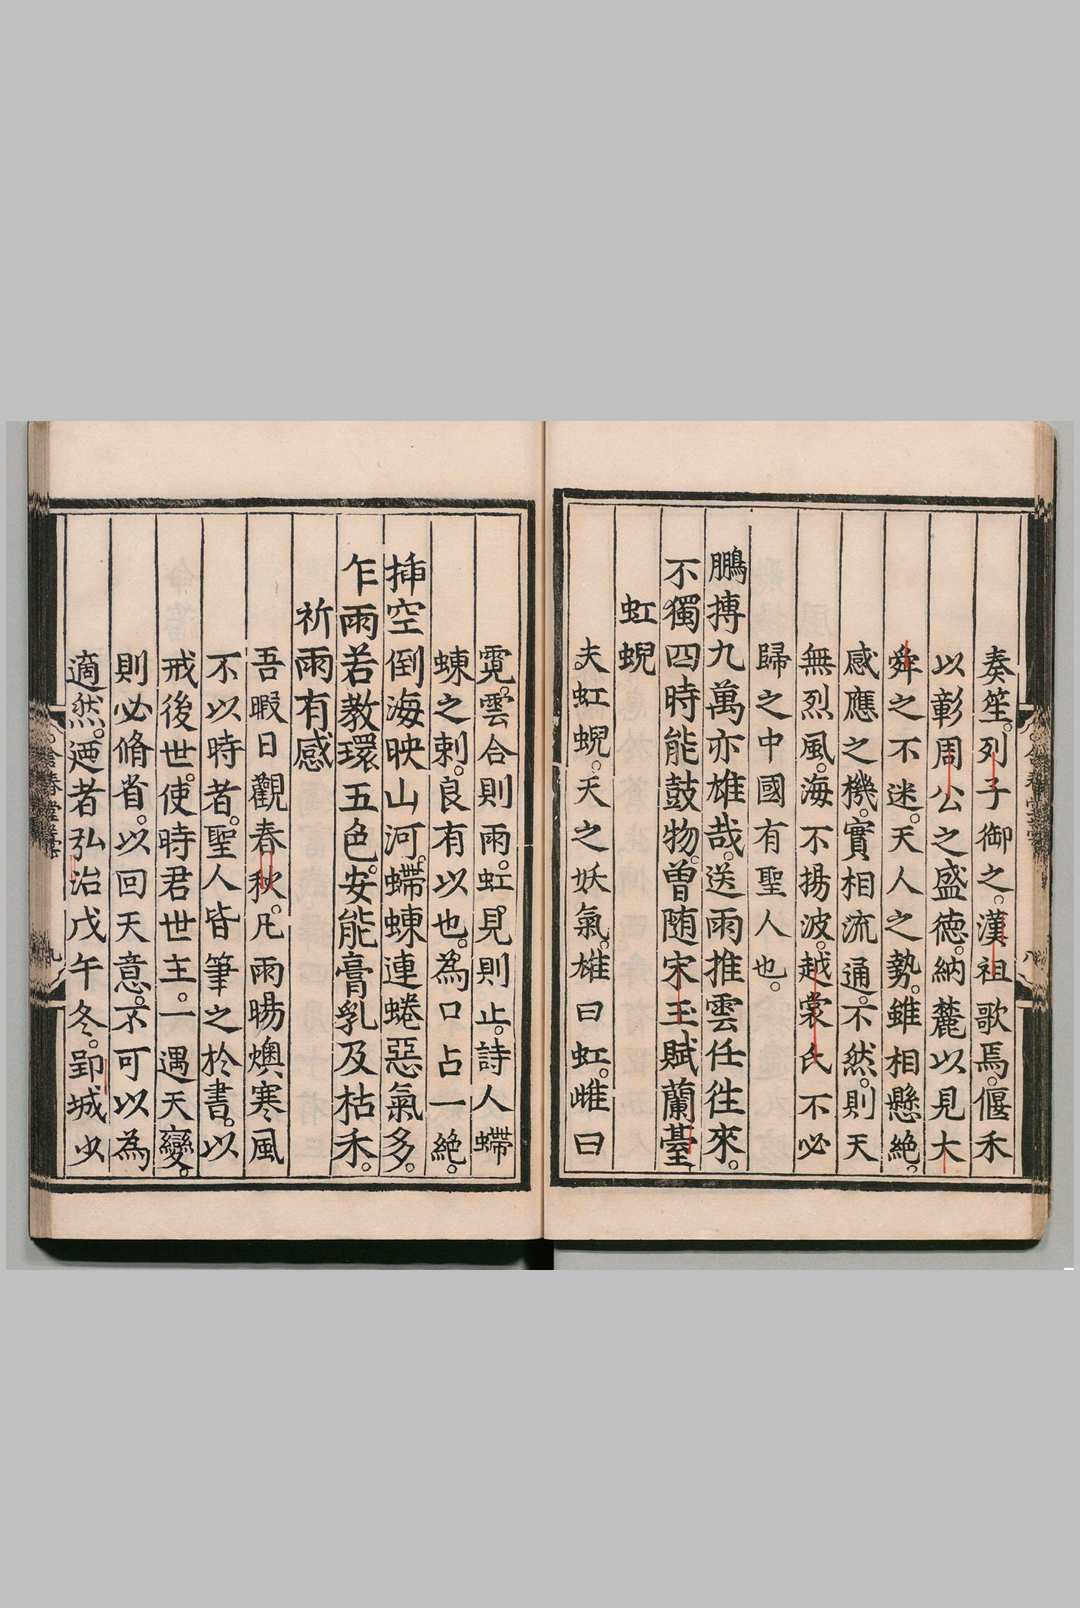 奏笙。列子御之。漢祖歌焉。偃禾
以彰周公之盛德。納麓以見大
舜之不迷。天人之勢。雖相懸絕。
感應之機。實相流通。不然。則天
無烈風。海不揚波。越裳氏不必
歸之中國有聖人也。
鵬搏九萬亦雄哉。送雨推雲任往來。
不獨四時能鼓物。曽随宋玉賦蘭臺。
虹蜺
夫虹蜺。天之妖氣。雄曰虹。雌曰
霓。雲合則雨。虹見則止。詩人螮
蝀之刺。良有以也。為口占一絕。
挿空倒海映山河。螮蝀連蜷惡氣多。
乍雨若教環五色。安能膏乳及枯禾。
祈雨有感
吾暇日觀春秋。凡雨暘燠寒風
不以時者。聖人皆筆之於書。以
戒後世。使時君世主。一遇天變。
則必脩省。以回天意。不可以為
適然。廼者弘治戊午冬。郢城少